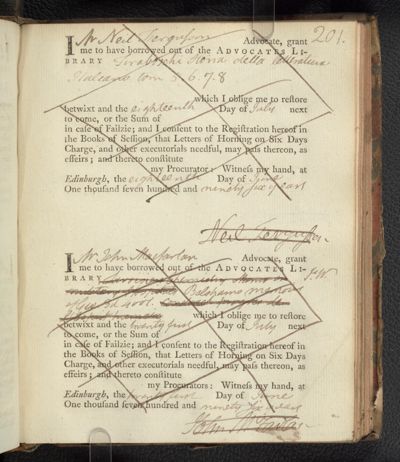 201.
I Mr Neil Ferguson Advocate, grant
me to have borrowed out of the ADVOCATES LI-
BRARY Tiraboschi Storia della Letteratura
Italiana tom 5. 6. 7. 8
which I oblige me to reſtore
betwixt and the eighteenth Day of July next
to come, or the Sum of
in caſe of Failzie; and I conſent to the Regiſtration hereof in
the Books of Seſſion, that Letters of Horning on Six Days
Charge, and other executorials needful, may paſs thereon, as
effeirs; and thereto conſtitute
my Procurator: Witneſs my hand, at
Edinburgh, the eighteenth Day of June
One thouſand ſeven hundred and ninety ſix years
Neil Ferguſson.
I Mr John Macfarlan Advocate, grant
me to have borrowed out of the ADVOCATES LI-
BRARY
which I oblige me to reſtore
betwixt and the twenty first Day of July next
to come, or the Sum of
in caſe of Failzie; and I conſent to the Regiſtration hereof in
the Books of Seſſion, that Letters of Horning on Six Days
Charge, and other executorials needful, may paſs thereon, as
effeirs; and thereto conſtitute
my Procurator: Witneſs my hand, at
Edinburgh, the twenty first Day of June
One thouſand ſeven hundred and ninety ſix years
John McFarlan